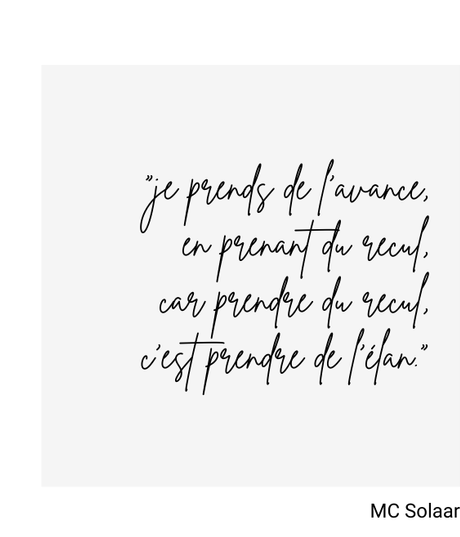 "je prends de l'avance,
en prenant du recul,
car prendre du recul,
c'est prendre de l'élan."
MC Solaar